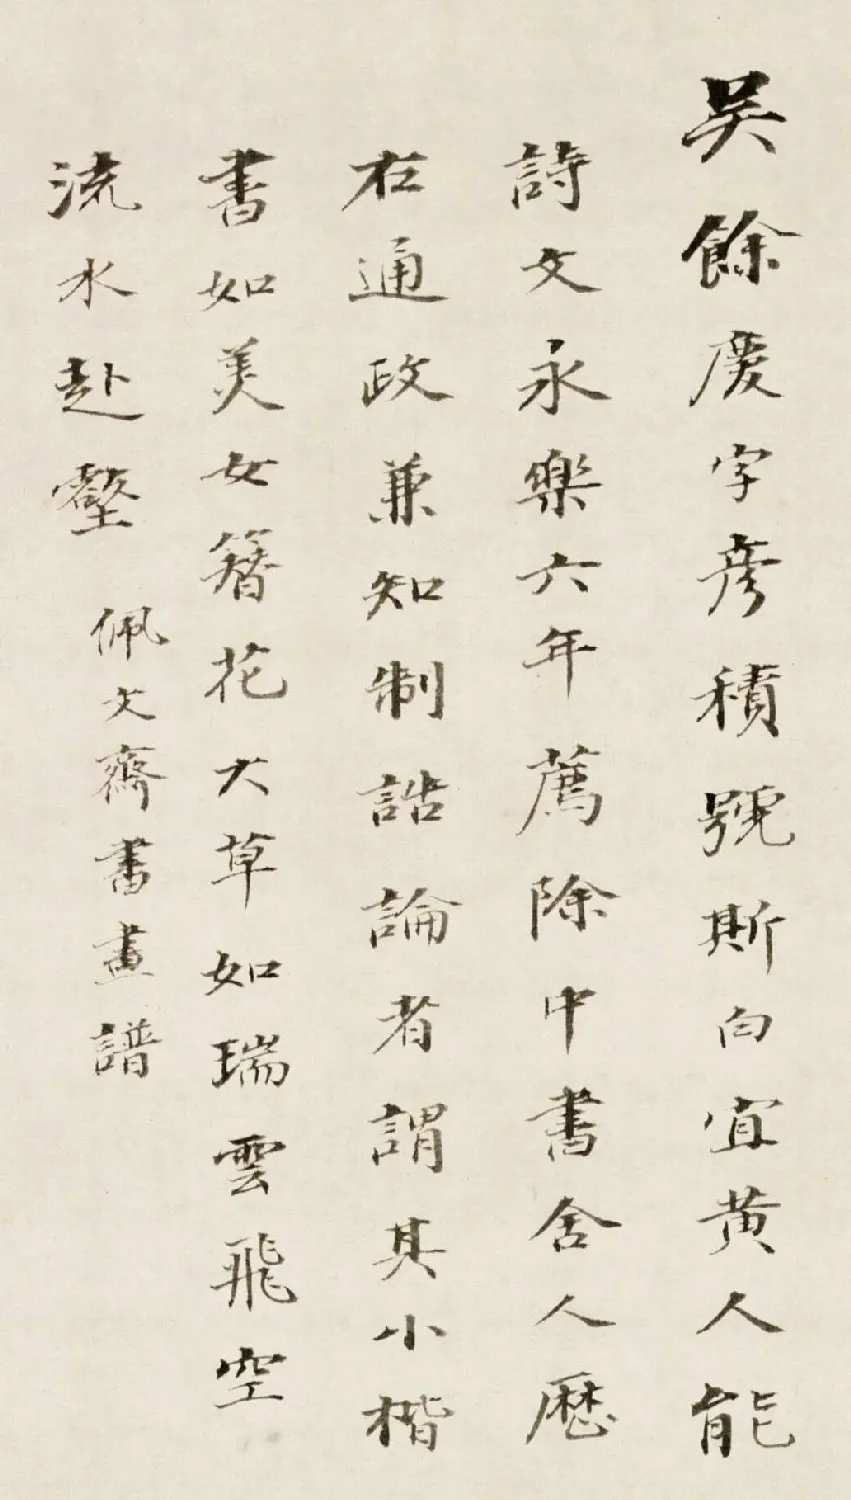 吴餘慶字彦積號斯白宜黄人能
詩文永樂六年薦除中書舍人歷
右通政兼知制誥論者謂其小楷
書如美女簪花大草如瑞雲飛空
流水赴壑
佩文齋書畫譜